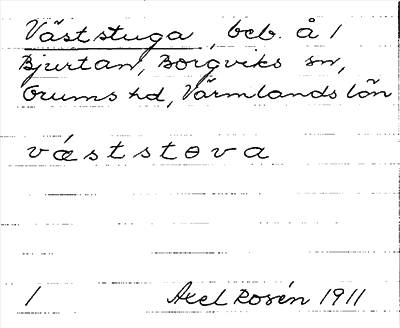 Väststuga, beb. å 1
Bjurtan, Borgviks sn,
Grums hd, Värmlands län
væ´ststɵva
1 Axel Rosén 1911